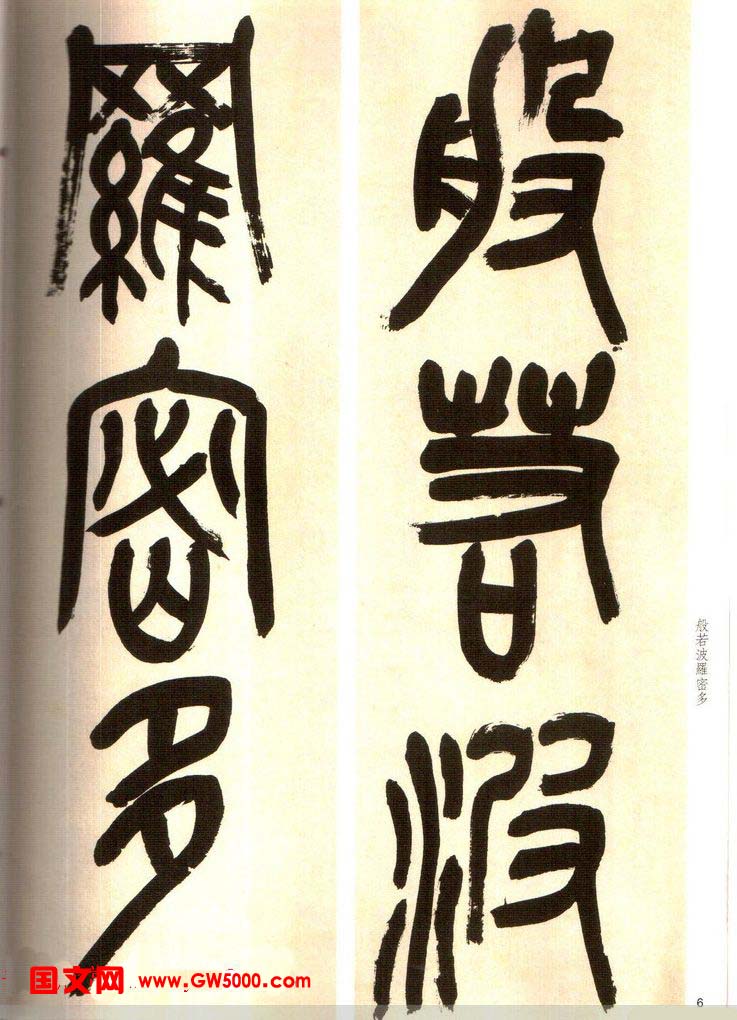 般若波
羅密多
般若波羅密多
6
国文网 www.GW5000.com